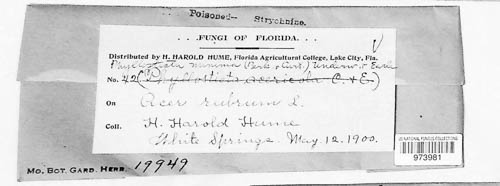 Poisoned— Strychnine.
..FUNGI OF FLORIDA...
Distributed by H. HAROLD HUME, Florida Agricultural College, Lake City, Fla.
Phyllosticta minima (Berk. & Curt.) Underw. & Earle
No. 42 (Phyllosticta acericola C. & E.)
On Acer rubrum L.
Coll. H. Harold Hume
White Springs. May, 12, 1900.
US NATIONAL FUNGUS COLLECTIONS
973981
MO. BOT. GARD. HERB. 19949